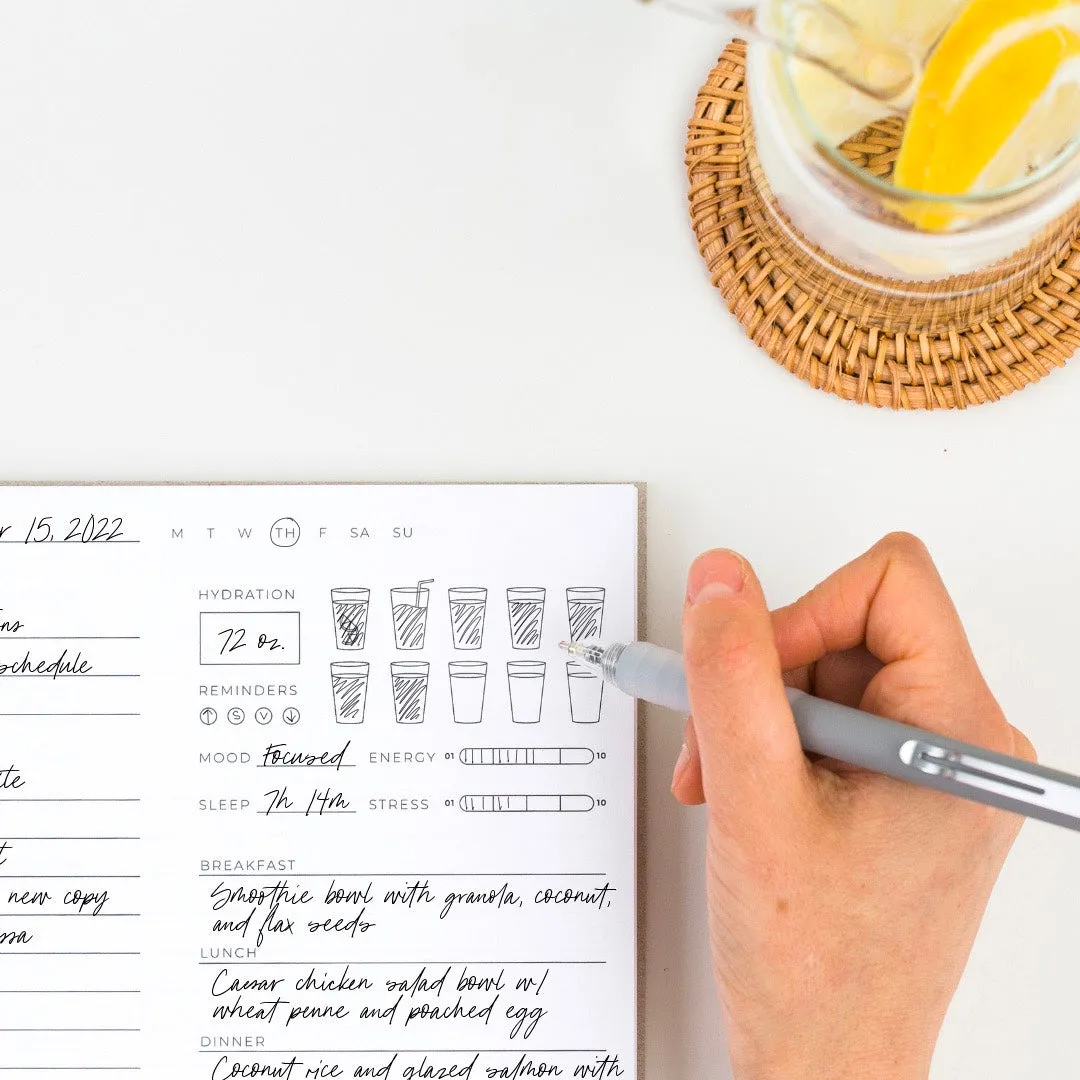 15, 2022 M T W TH F SA SU
HYDRATION
72 oz.
chedule
REMINDERS
S V
MOOD Focused ENERGY 01 10
SLEEP 7h 14m STRESS 01 10
BREAKFAST
Smoothie bowl with granola, coconut,
new copy
and flax seeds
LUNCH
Caesar chicken salad bowl w/
wheat penne and poached egg
DINNER
Coconut rice and glazed salmon with